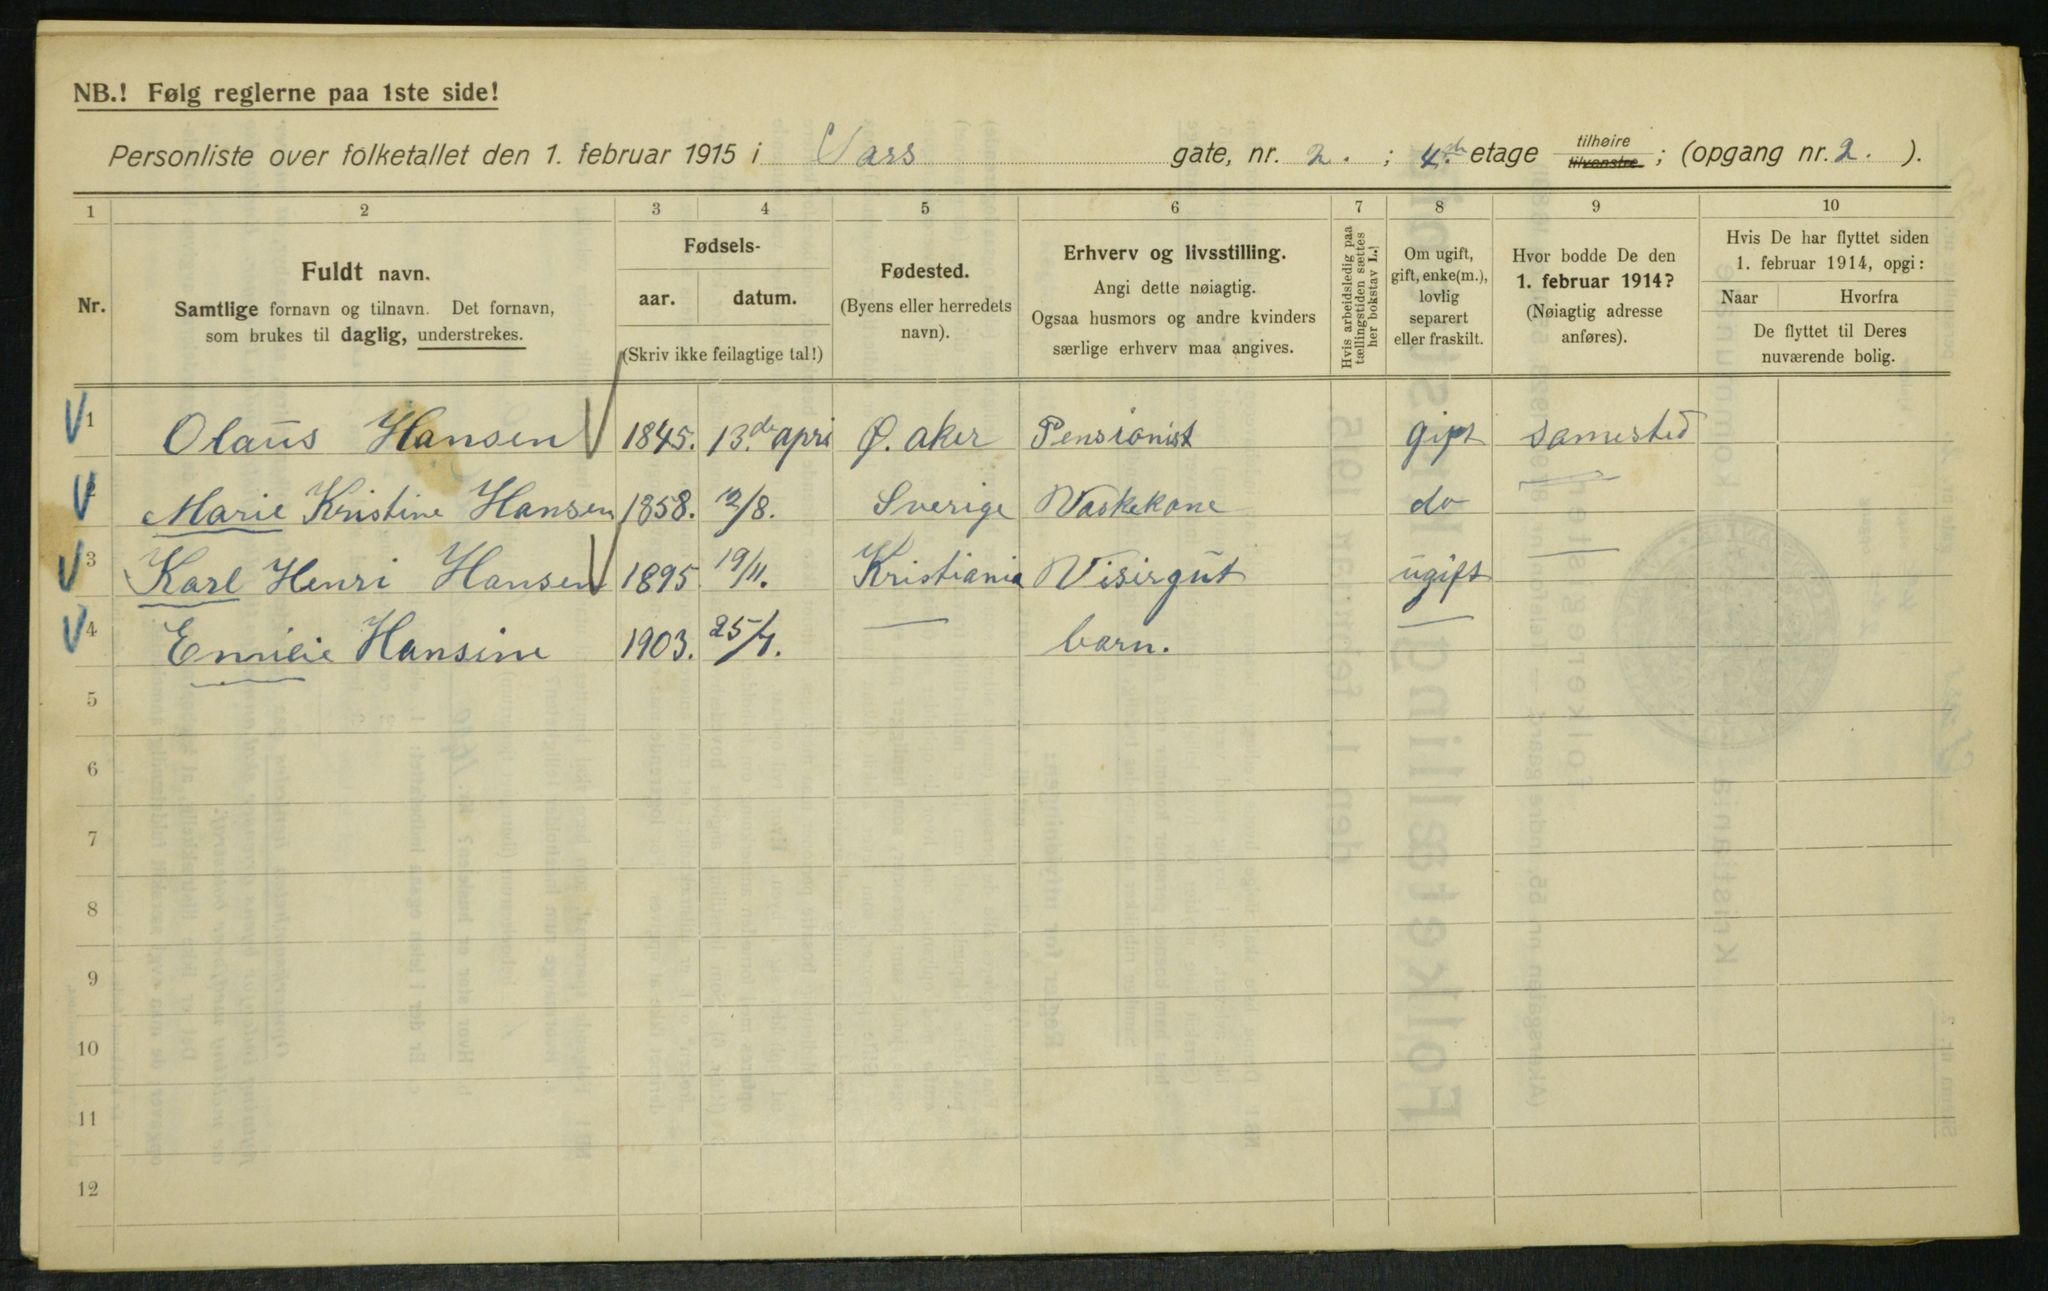 NB.! Følg reglerne paa 1ste side!
Personliste over folketallet den 1. februar 1915 i Vars gate, nr. 2. ; 4. etage tilhøire tilvenstre ; (opgang nr. 2. ).
1 2 3 4 5 6 7 8 9 10
Nr.
Fuldt navn.
Samtlige fornavn og tilnavn. Det fornavn,
som brukes til daglig, understrekes.
Fødsels-
aar. datum.
(Skriv ikke feilagtige tal!)
Fødested.
(Byens eller herredets
navn).
Erhverv og livsstilling.
Angi dette nøiagtig.
Ogsaa husmors og andre kvinders
særlige erhverv maa angives.
Hvis arbeidsledig paa
tællingstiden sættes
her bokstav L.!
Om ugift,
gift, enke(m.),
lovlig
separert
eller fraskilt.
Hvor bodde De den
1. februar 1914?
(Nøiagtig adresse
anføres).
Hvis De har flyttet siden
1. februar 1914, opgi:
Naar Hvorfra
De flyttet til Deres
nuværende bolig.
1 Olaüs Hansen 1845. 13.de apri Ø. aker Pensionist gift samested
2 Marie Kristine Hansen 1858. /8. Sverige Vaskekone do
3 Karl Henri Hansen 1895 19/11. Kristiania Visirgut ugift —
4 Emilie Hansine 1903. 25/7. — barn. —
5
6
7
8
9
10
11
12